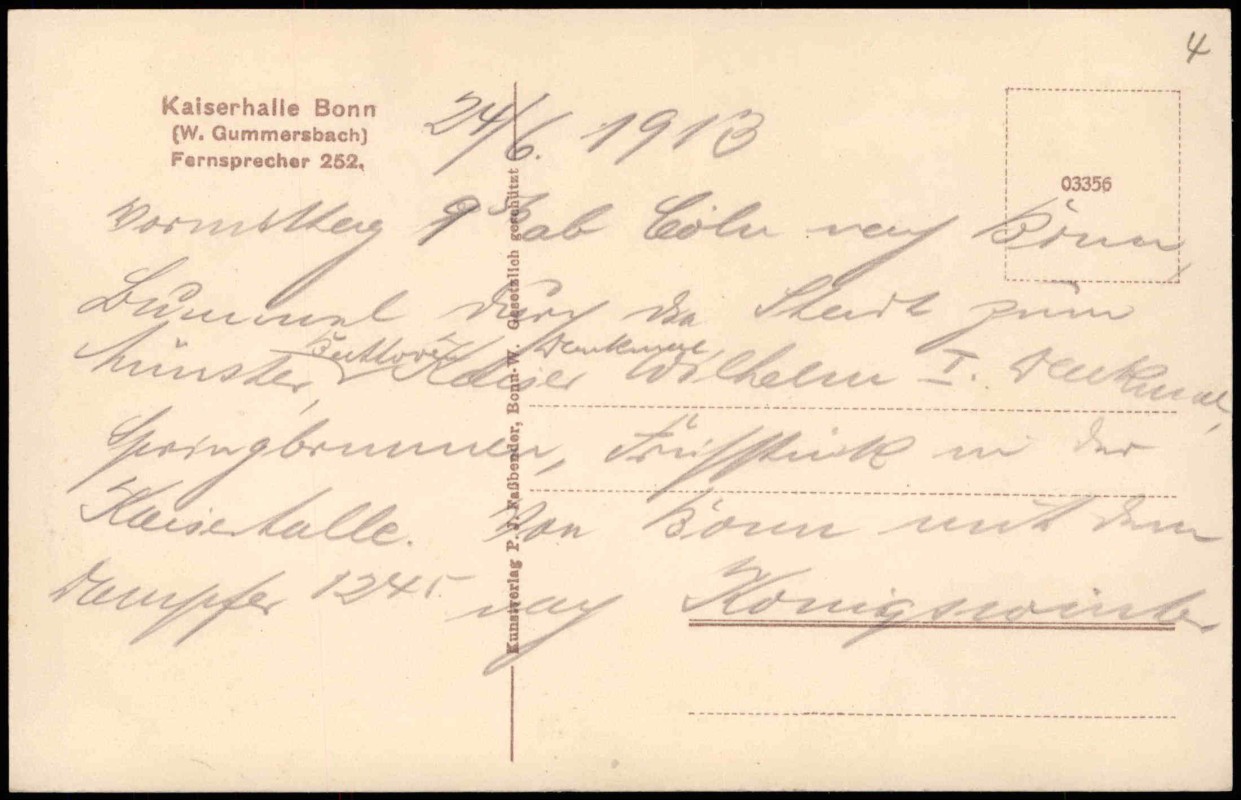 4
Kaiserhalle Bonn
(W. Gummersbach)
Fernsprecher 252.
03356
Kunstverlag P. J. Faßbender, Bonn-W. Gesetzlich geschützt
24/6. 1913
Vormittag 9 ab Cöln nach Bonn,
Bummel durch die Stadt zum
Beethoven Denkmal,
Münster, Kaiser Wilhelm I. Denkmal,
Springbrunnen, Frühstück in der
Kaiserhalle. Von Bonn mit dem
Dampfer 1245 nach Königswinter